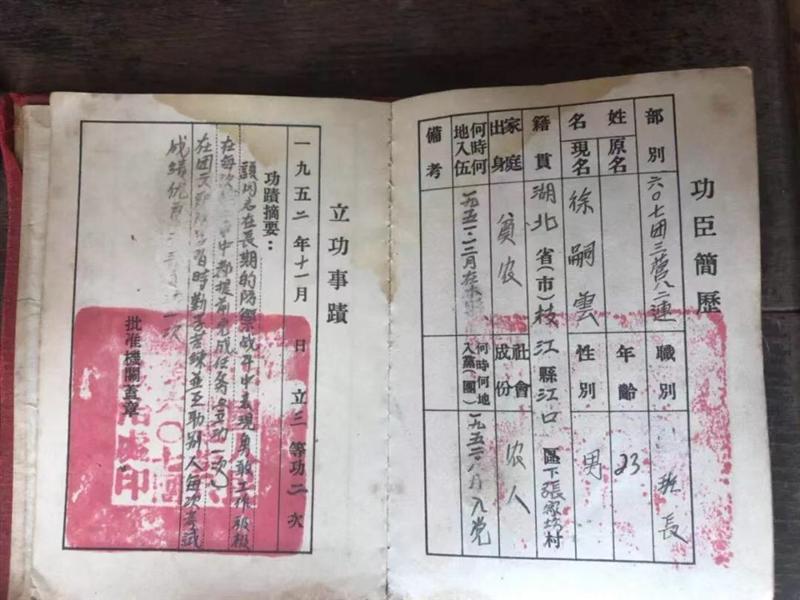 功臣簡歷
部別 六〇七团三营八二連 職別 班長
姓名 原名 年齡 23
現名 徐嗣雲 性別 男
籍貫 湖北省(市)枝江縣江口區下張家 村
家庭出身 貧农 社會成份 农人
何時何地入伍 一九五一.二月在 何時何地入黨(團) 一九五二 月入党
備考
立功事蹟
一九五二年十一月 日 立三等功二次
功蹟摘要：
同志在長期的防禦战斗中表現勇敢工作积极
在每次 中都提前完成任务 立功一次
在团文 習時勤学苦練並互助別人每次考試
成績优 一次
批准機關蓋章
六〇七團
治處印